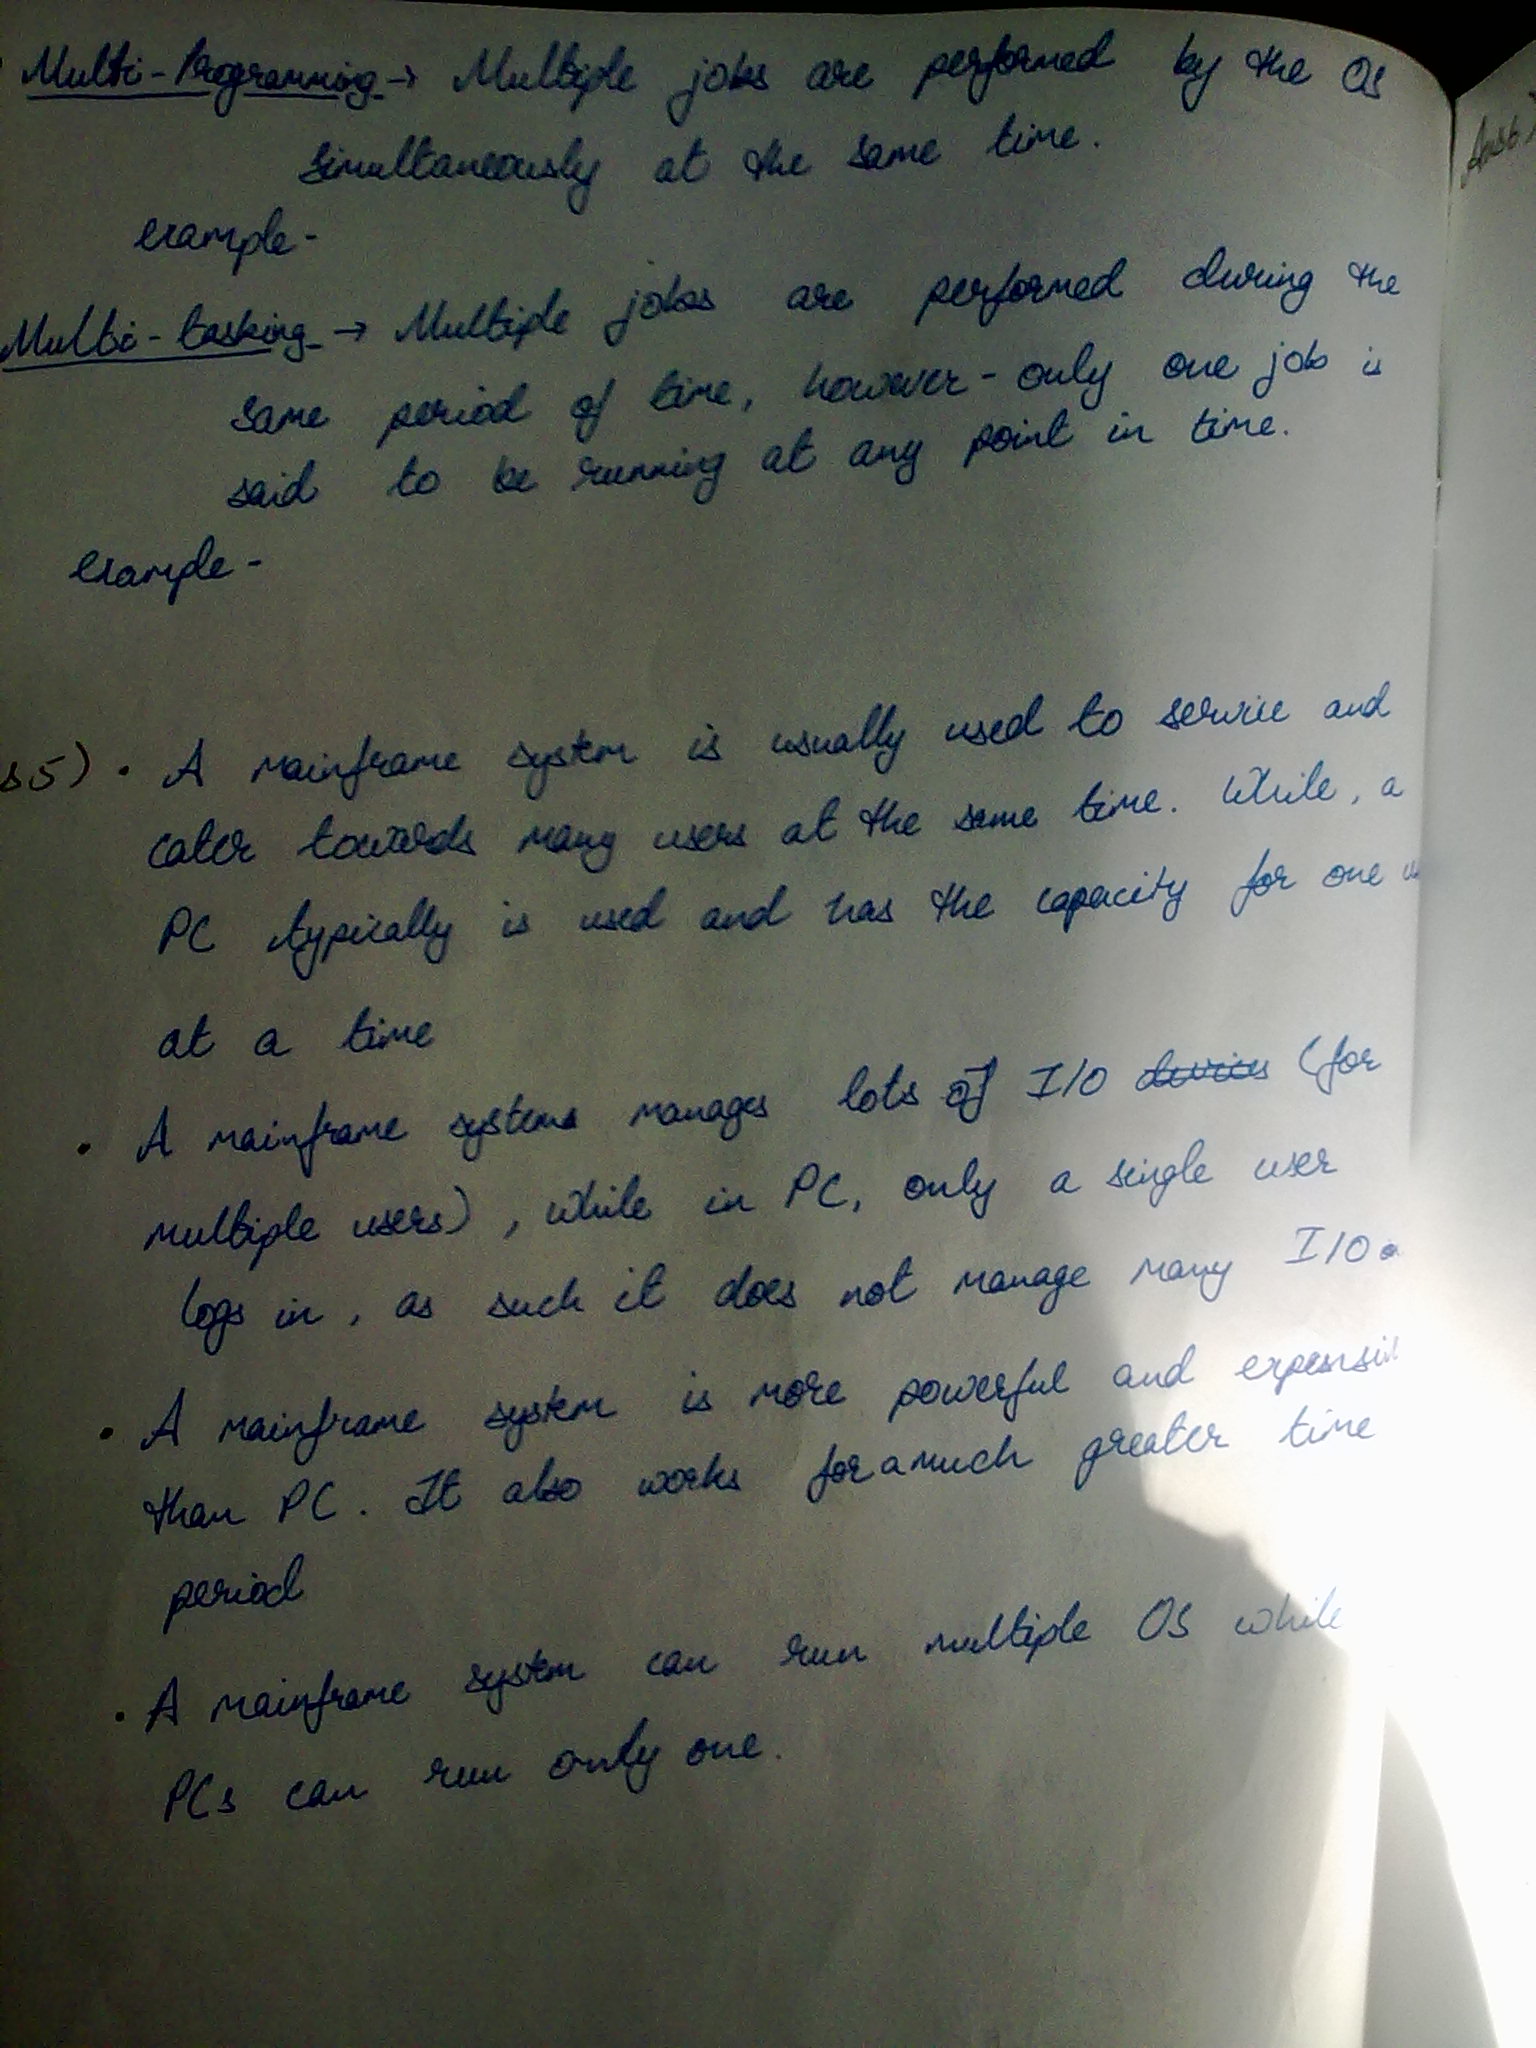 Multi-Programming → Multiple jobs are performed by the OS
simultaneously at the same time.
example-
Multi-tasking → Multiple jobs are performed during the
same period of time, however - only one job is
said to be running at any point in time.
example -
s5) • A mainframe system is usually used to service and
cater towards many users at the same time. While, a
PC typically is used and has the capacity for one
at a time
• A mainframe systems manages lots of I/O devices (for
multiple users), while in PC, only a single user
logs in, as such it does not manage many I/O
• A mainframe system is more powerful and
than PC. It also works for a much greater time
period
• A mainframe system can run multiple OS while
PCs can run only one.